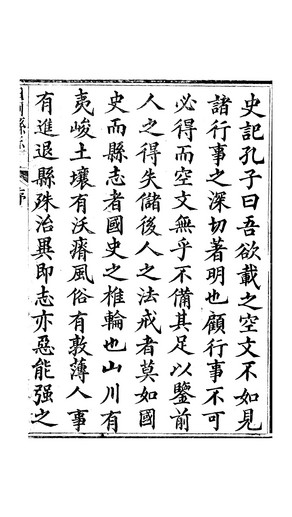 史記孔子曰吾欲載之空文不如見
諸行事之深切著明也顧行事不可
必得而空文無乎不備其足以鑒前
人之得失儲後人之法戒者莫如國
史而縣志者國史之椎輪也山川有
夷峻土壤有沃瘠風俗有敦薄人事
有進退縣殊治異即志亦惡能强之